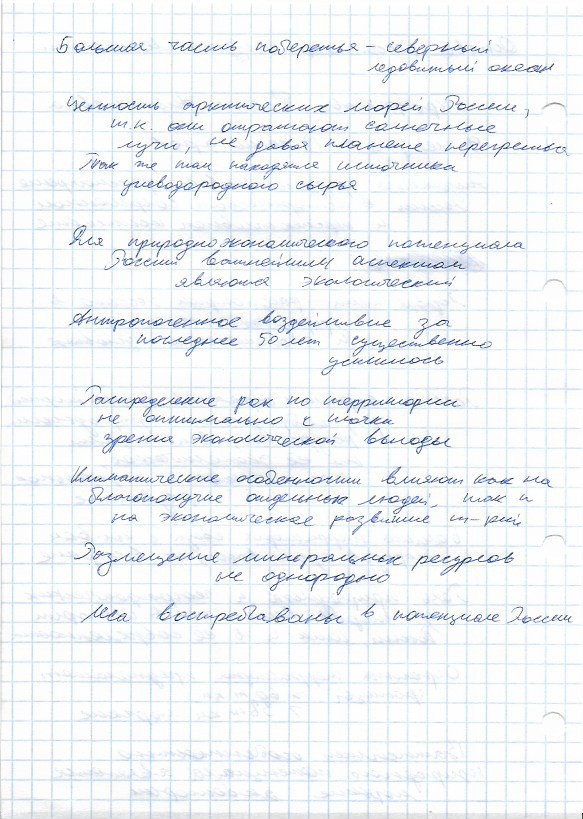 Большая часть побережья – северный
ледовитый океан
Ценность арктических морей России,
т.к. они отражают солнечные
лучи, не давая планете перегреться
Так же там находятся источники
углеводородного сырья
Для природноэкономического потенциала
России важнейшим аспектом
является экологический
Антропогенное воздействие за
последнее 50 лет существенно
усилилось
Распределение рек по территории
не оптимально с точки
зрения экономической выгоды
Климатические особенности влияют как на
благополучие отдельных людей, так и
на экономическое развитие т-рии
Размещение минеральных ресурсов
не однородно
Леса востребованы в потенциале России